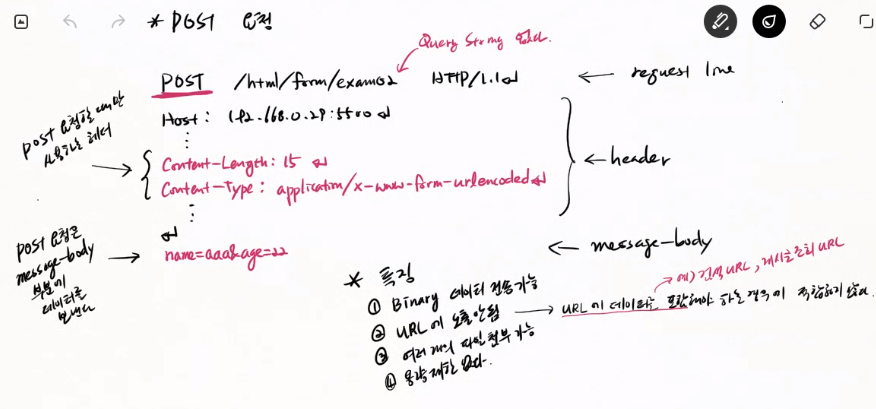 * POST 요청
Query String 없다.
POST /html/form/exam02 HTTP/1.1↵ ← request line
Host: 192.168.0.29:5500 ↵
POST 요청할 때만
사용하는 헤더
Content-Length: 15 ↵
Content-Type: application/x-www-form-urlencoded↵
← header
↵
POST 요청은
message-body
부분에
데이터를
보낸다
name=aaa&age=22
← message-body
* 특징
① Binary 데이터 전송가능
② URL에 노출안됨 → URL에 데이터를 포함해야 하는 경우에 적합하지 않다.
→ 예) 검색URL, 게시글조회URL
③ 여러개의 파일 첨부 가능
④ 용량제한 없다.